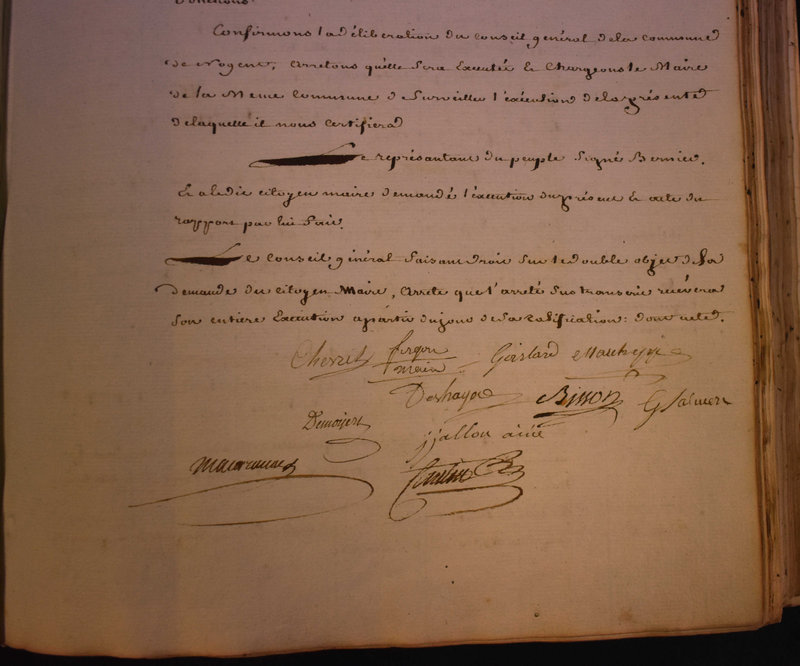 Confirmons la déliberation du conseil général de la commune
de Nogent, arretons quelle sera Executée Et Chargeons le Maire
de la Meme Commune de Surveiller l'exécution de la présente
de laquelle il nous certifiera
Le représantant du peuple Signé Bernier.
Et a ledit citoyen maire demandé l'execution du présent Et acte du
rapport par lui fait.
Le Conseil général faisant droit sur le double objet de la
demande du citoyen Maire, arrete que l'arreté sus transcrit recevera
Son entiere Execution apartir du jour de sa notification: dont acte.
Chevret
maire
Deshayes Bisson
jjallon ainé